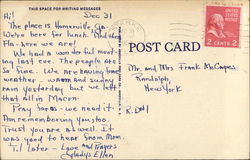 THIS SPACE FOR WRITING MESSAGES
Hi! Dec 31
The place is Homerville Ga.
We're here for lunch.
Fla. here we are!
We had a wonderful meet-
ing last eve. The people are
so fine. We are having fine
weather - warm and sun
rain yesterday but we left
that all in Macon
Pray for us - we need it.
Am remembering you too.
Trust you are all well. It
was good to hear from Mom.
Til later - Love and Prayers
Gladys Ellen
POST CARD
2 CENTS 2
Mr. and Mrs. Frank McCapes
Randolph,
New York
R.D.#1